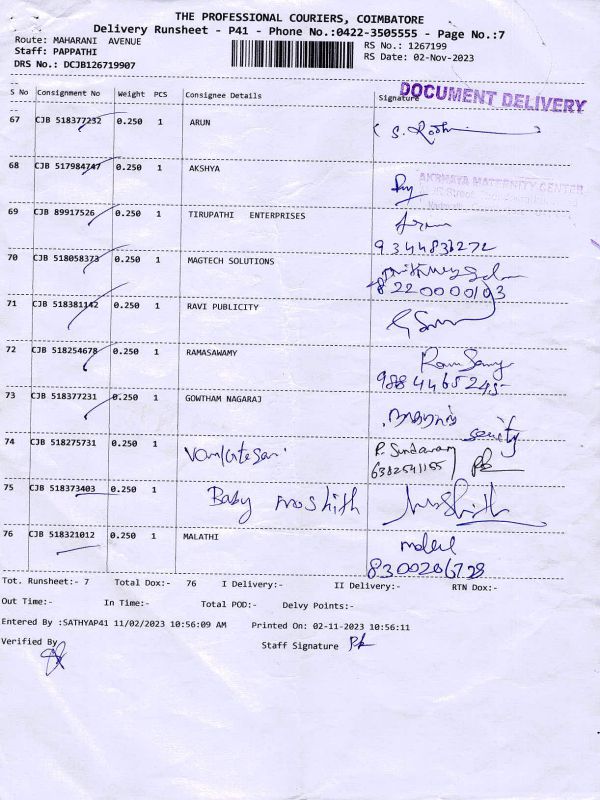 THE PROFESSIONAL COURIERS, COIMBATORE
Delivery Runsheet - P41 - Phone No.:0422-3505555 - Page No.:7
Route: MAHARANI AVENUE
RS No.: 1267199
Staff: PAPPATHI
RS Date: 02-Nov-2023
DRS No.: DCJB126719907
S No Consignment No Weight PCS Consignee Details Signature
DOCUMENT DELIVERY
67 CJB 518377232 0.250 1 ARUN
68 CJB 517984747 0.250 1 AKSHYA
AKSHAYA MATERNITY CENTER
69 CJB 89917526 0.250 1 TIRUPATHI ENTERPRISES
9344833272
70 CJB 518058373 0.250 1 MAGTECH SOLUTIONS
8220000103
71 CJB 518381142 0.250 1 RAVI PUBLICITY
72 CJB 518254678 0.250 1 RAMASAWAMY Ram Samy
9884465245
73 CJB 518377231 0.250 1 GOWTHAM NAGARAJ
74 CJB 518275731 0.250 1 P. Sundaram
6382541155
75 CJB 518373403 0.250 1 Baby
76 CJB 518321012 0.250 1 MALATHI
8300286728
Tot. Runsheet:- 7 Total Dox:- 76 I Delivery:- II Delivery:- RTN Dox:-
Out Time:- In Time:- Total POD:- Delvy Points:-
Entered By :SATHYAP41 11/02/2023 10:56:09 AM Printed On: 02-11-2023 10:56:11
Verified By Staff Signature